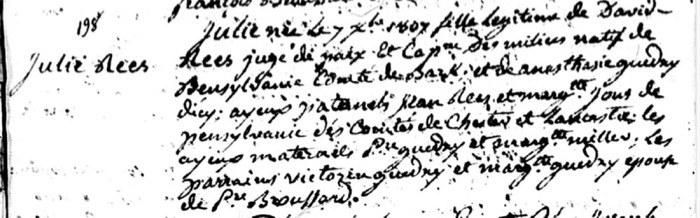 198
Julie Rees
Julie née le 7 xbre 1807 fille légitime de David
Rees juge de paix et Capne des milices natif de
Pensylvanie Comté de et de anasthasie guedry
d'icy: ayeux paternels jean Rees et margte jons de
pensylvanie des Comtés de Chester et Lancastre: les
ayeux maternels Pre guedry et margtte miller. Les
parrains victorin guedry et margtte guedry epouse
de Pre Broussard.